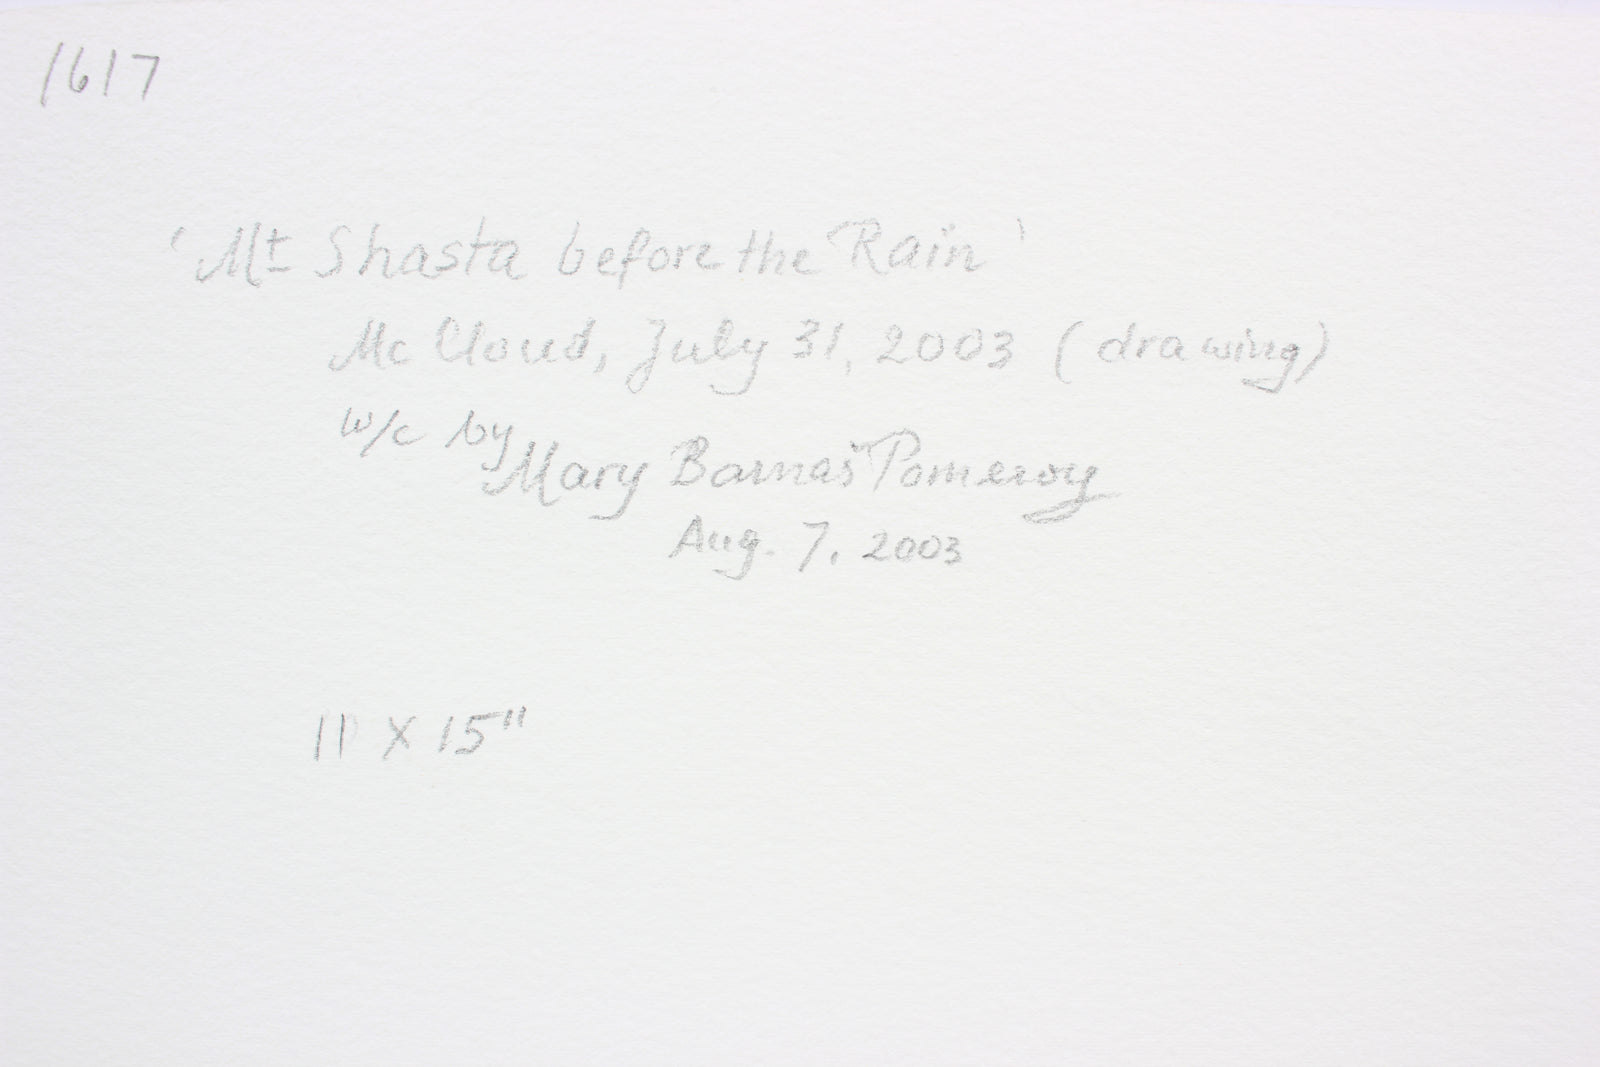 1617
'Mt Shasta before the Rain'
Mc Cloud, July 31, 2003 (drawing)
w/c by
Mary Barnas Pomeroy
Aug. 7, 2003
11 X 15"